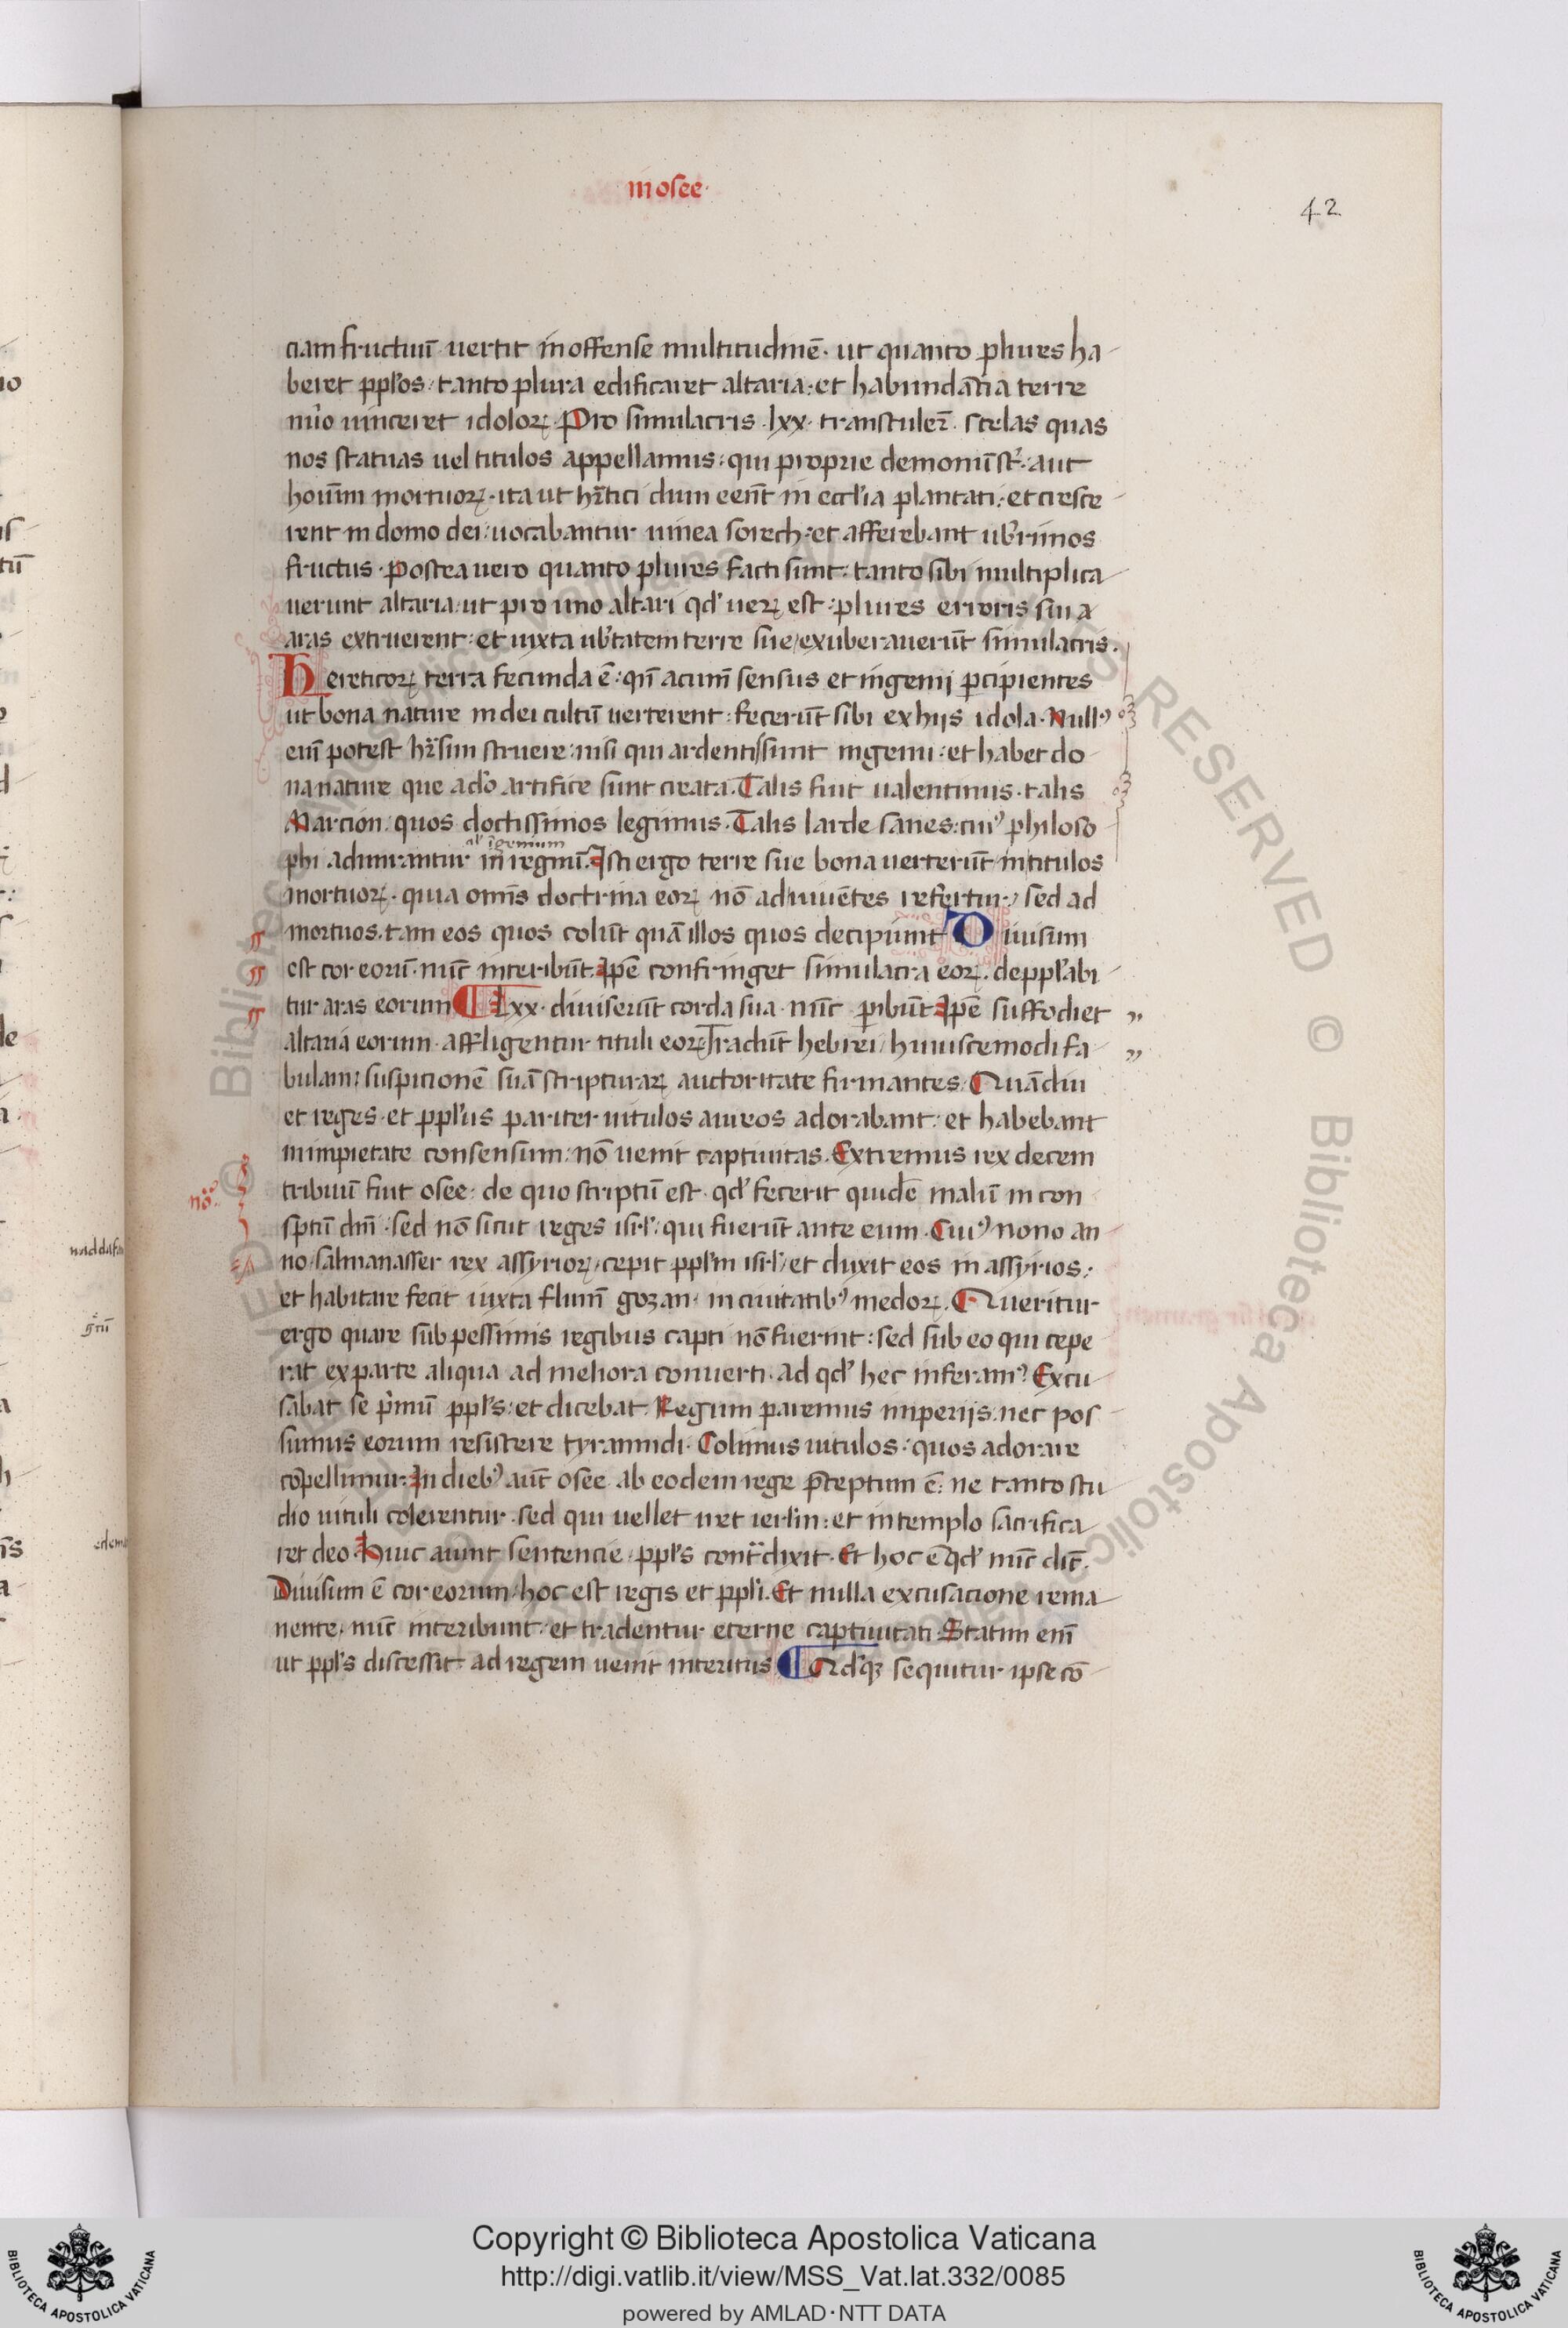 in osee·
42
ciam fructuū uertit in offense multitudinē· ut quanto plures ha
beret ppl'os· tanto plura edificaret altaria· et habundātia terre
nūo uinceret idoloꝝ. Pro simulacris ·lxx· transtuler̄. stelas quas
nos statuas uel titulos appellamus: qui proprie demoniū st̄· aut
hoīum mortuoꝝ· ita ut hr̄tici dum eent̄ in eccl'ia plantati: et cresce
rent in domo dei: uocabantur uinea sorech: et afferebant ub'rimos
fructus· postea uero quanto plures facti sunt: tanto sibi multiplica
uerunt altaria· ut pro uno altari qd' ueꝝ est· plures erroris sui a
aras extruerent: et iuxta ub'tatem terre sue exuberauerūt simulacris.
Hereticoꝝ terra fecunda ē: qn̄ acum̄ sensus et ingenij ꝑcipientes
ut bona nature in dei cultū uerterent: fecerūt sibi ex hijs idola. Null'
eni potest hr̄sim struere: nisi qui ardentissimi ingenii: et habet do
na nature que a dō artifice sunt creata. Talis fuit ualentinus· talis
Marcion: quos doctissimos legimus. Talis barde sanes: cui' philoso
al' īgenium
phi admirantur in regnū. Isti ergo terre sue bona uerterūt in titulos
mortuoꝝ· quia omīs doctrina eoꝝ nō ad uiuētes refertur, sed ad
mortuos. tam eos quos colūt quā illos quos decipiunt Diuisum
est cor eorū· nūc interibūt. Ipē confringet simulacra eoꝝ. deppl'abi
tur aras eorum Lxx· diuiserūt corda sua· nūc ꝑibūt Ipē suffodiet
altaria eorum· affligentur tituli eoꝝ Tradūt hebrei huiuscemodi fa
bulam: suspicionē suā scripturaꝝ auctoritate firmantes. Quādiu
et reges· et ppl'us pariter uitulos aureos adorabant: et habebant
in impietate consensum: nō uenit captiuitas. Extremus rex decem
nō.
tribuū fuit osee: de quo scriptū est· qd' fecerit quidē malū in con
sptū dn̄i· sed nō sicut reges isrl': qui fuerūt ante eum. Cui' nono an
no salmanasser rex assyrioꝝ, cepit ppl'm isrl', et duxit eos in assyrios:
et habitare fecit iuxta flum̄ gozan· in ciuitatib' medoꝝ. Queritur
ergo quare sub pessimis regibus capti nō fuerint: sed sub eo qui cepe
rat ex parte aliqua ad meliora conuerti. ad qd' hec inferam' Excu
sabat se p'mū ppl's: et dicebat. Regum paremus imperijs: nec pos
sumus eorum resistere tyrannidi. Colimus uitulos: quos adorare
cōpellimur: In dieb' aūt osee ab eodem rege p̄ceptum ē: ne tanto stu
dio uituli colerentur· sed qui uellet iret ierl'm: et in templo sacrifica
ret deo. Huic aiunt sentencie· ppl's cont̄dixit· Et hoc ē qd' nūc dic̄.
Diuisum ē cor eorum· hoc est regis et ppl'i. Et nulla excusacione rema
nente· nūc interibunt: et tradentur eterne captiuitati. Statim eni
ut ppl's discessit: ad regem uenit interitus Qd'qꝫ sequitur ipse cō
Copyright © Biblioteca Apostolica Vaticana
http://digi.vatlib.it/view/MSS_Vat.lat.332/0085
powered by AMLAD·NTT DATA
BIBLIOTECA APOSTOLICA VATICANA
BIBLIOTECA APOSTOLICA VATICANA